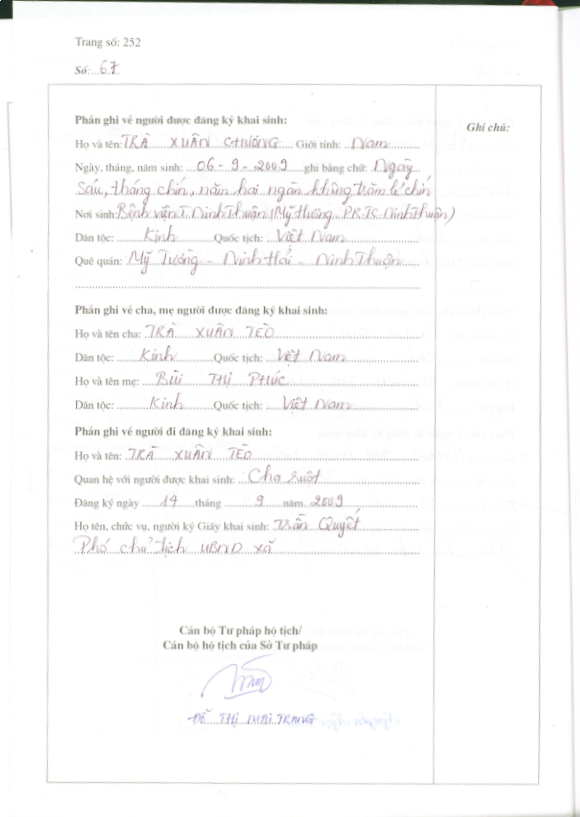 Trang số: 252
Số: 67
Phần ghi về người được đăng ký khai sinh:
Ghi chú:
Họ và tên: TRÀ XUÂN CHƯƠNG Giới tính: Nam
Ngày, tháng, năm sinh: 06 - 9 - 2009 ghi bằng chữ: Ngày
Sáu, tháng chín, năm hai ngàn không trăm lẻ chín
Nơi sinh: Bệnh viện T. Ninh Thuận (Mỹ Hương PR.TC Ninh Thuận)
Dân tộc: Kinh Quốc tịch: Việt Nam
Quê quán: Mỹ Tường - Ninh Hải - Ninh Thuận
Phần ghi về cha, mẹ người được đăng ký khai sinh:
Họ và tên cha: TRÀ XUÂN TÈO
Dân tộc: Kinh Quốc tịch: Việt Nam
Họ và tên mẹ: BÙI THỊ PHÚC
Dân tộc: Kinh Quốc tịch: Việt Nam
Phần ghi về người đi đăng ký khai sinh:
Họ và tên: TRÀ XUÂN TÈO
Quan hệ với người được khai sinh: Cha ruột
Đăng ký ngày 14 tháng 9 năm 2009
Họ tên, chức vụ, người ký Giấy khai sinh: Trần Quyết
Phó chủ tịch UBND xã
Cán bộ Tư pháp hộ tịch/
Cán bộ hộ tịch của Sở Tư pháp
ĐỖ THỊ MAI TRANG